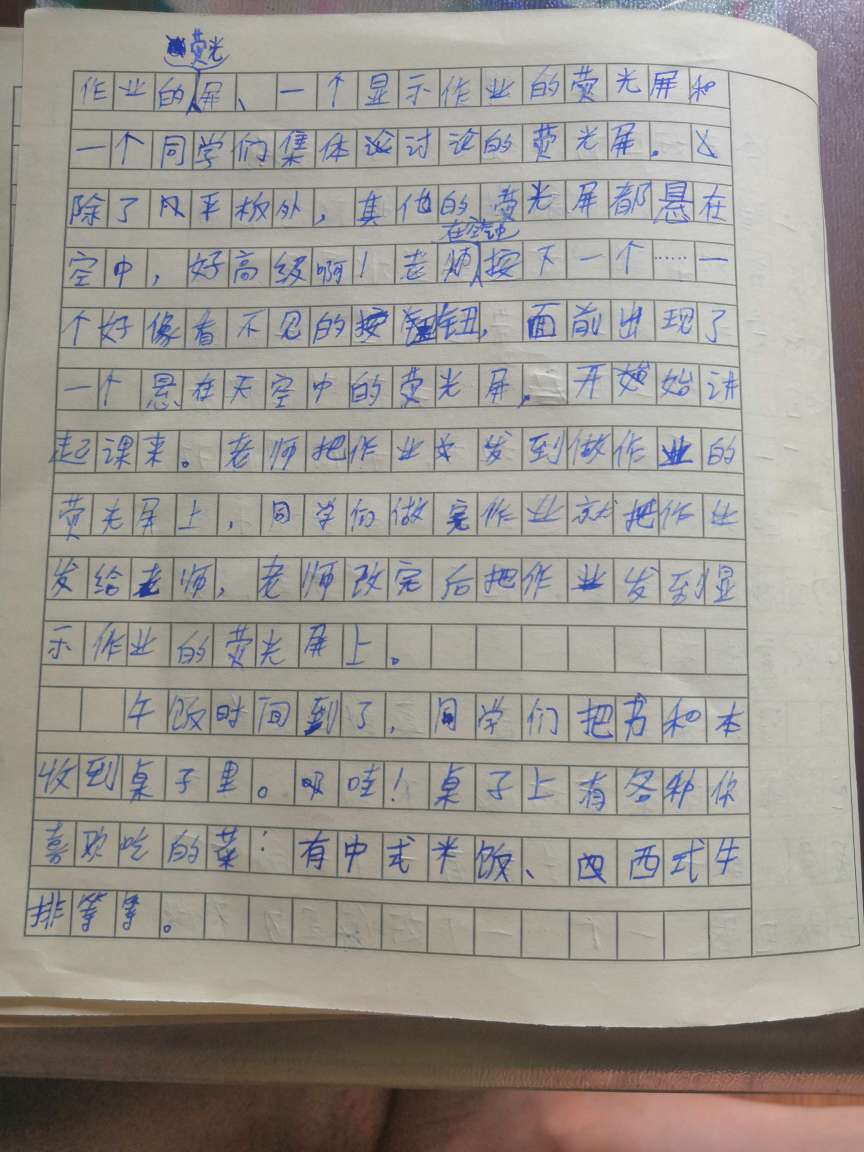 荧光
作业的屏、一个显示作业的荧光屏和
一个同学们集体讨论的荧光屏。
除了平板外，其他的荧光屏都悬在
在空中
空中，好高级啊！老师按下一个……一
个好像看不见的按钮，面前出现了
一个悬在天空中的荧光屏，开始讲
起课来。老师把作业发到做作业的
荧光屏上，同学们做完作业就把作业
发给老师，老师改完后把作业发到显
示作业的荧光屏上。
午饭时间到了，同学们把书和本
收到桌子里。哇！桌子上有各种你
喜欢吃的菜：有中式米饭、西式牛
排等等。